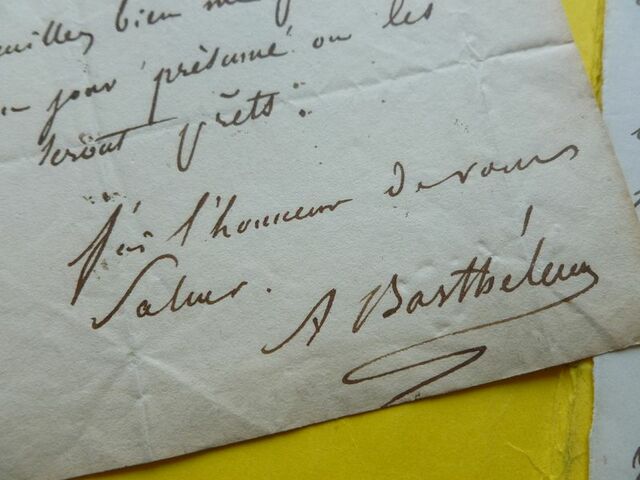 bien
jour présumé ou les
seront prêts.
J'ai l'honneur de vous
Saluer.
A Barthélemy